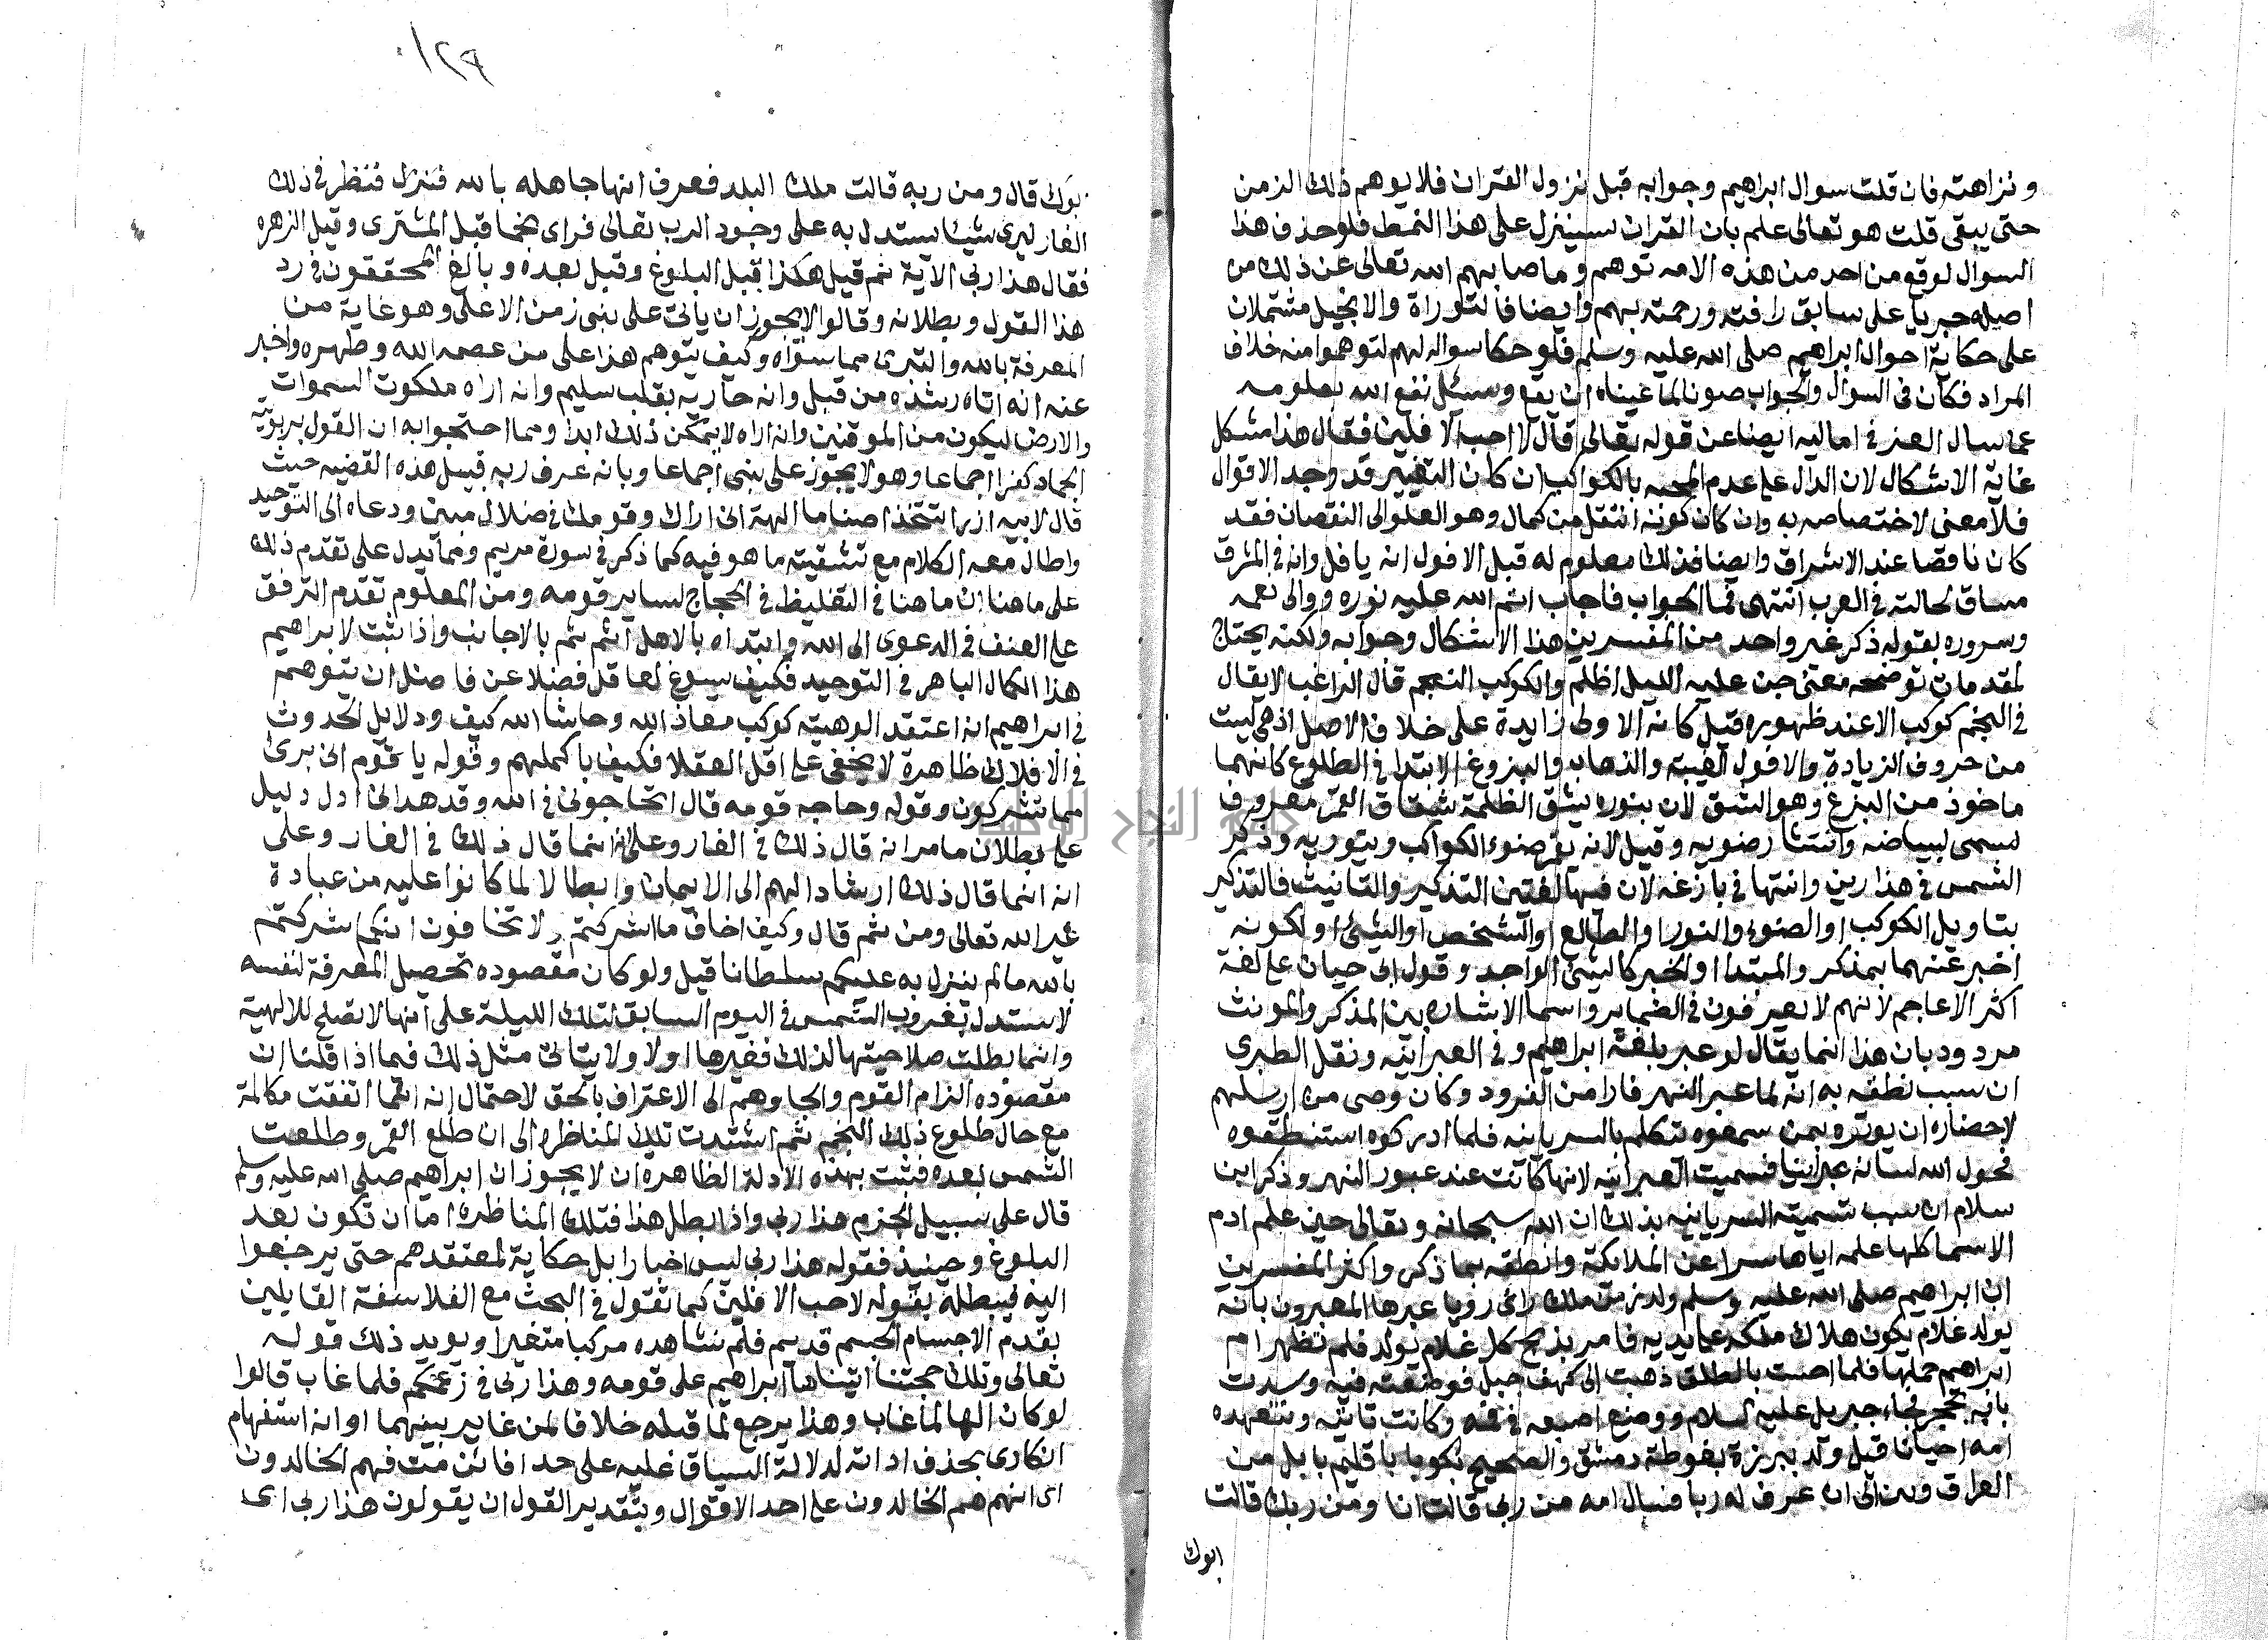 ونزاهته فان قلت سوال ابراهيم وجوابه قبل نزول القران فلا يوهم ذلك الزمن
حتى يبقى قلت هو تعالى علم بان القران سينزل على هذا النمط فلو حذف هذا
السوال لوقع من احد من هذه الامه توهم وما صابهم الله تعالى عن ذلك من
اصله جريا على سابق رافته ورحمته بهم وايضا فالتوراة والانجيل مشتملان
على حكاية احوال ابراهيم صلى الله عليه وسلم فلو حكا سواله لهم لتوهموا منه خلاف
المراد فكان فى السوال والجواب صون لما عيناه ان يقع وسئل نفع الله بعلومه
عما سال العز في اماليه ايضا عن قوله تعالى قال لا احب الافلين فقال هذا مشكل
غاية الاشكال لان الدال على عدم الهيه الكواكب ان كان التغيير قد وجد الاقوال
فلا معنى لاختصاصه به وان كان كونه انتقل من كمال وهو العلو الى النقصان فقد
كان ناقصا عند الاشراق وايضا فذلك معلوم له قبل الافول انه يافل وانه في المشرق
مساق لحالته في الغرب انتهى فما الجواب فاجاب اتم الله عليه نوره ووالى نعمه
وسروره بقوله ذكر غير واحد من المفسرين هذا الاشكال وجوابه ولكنه يحتاج
لمقدمات توضحه معنى جن عليه الليل اظلم والكوكب النجم قال الراغب لا يقال
في النجم كوكب الا عند ظهوره قيل كانه الاولى زايدة على خلاف الاصل اذ هى ليست
من حروف الزيادة والافول الغيبة والذهاب والبزوغ الابتدا في الطلوع كانهما
ماخوذ من البزغ وهو الشق لان بنوره يشق الظلمة شقاق القمر معروف
سمى لبياضه وانتشار ضويه وقيل لانه يقمر ضوء الكواكب ويتوريه وذكر
الشمس في هذا ربي وانثها في بازغه لان فيها لغتين التذكير والتانيث فالتذكير
بتاويل الكوكب او الضوء والنور او الطالع او الشخص او الشىء او لكونه
اخبر عنهما بمذكر والمبتدا والخبر كالشىء الواحد وقول ابى حيان على لغة
اكثر الاعاجم لانهم لا يعرفون في الضماير واسما الاشاره بين المذكر والمونث
مردود بان هذا انما يقال لو عبر بلغة ابراهيم وفي العبرانيه ونقل الطبرى
ان سبب نطقه به انه لما عبر النهر فارا من النمرود وكان وصى من ارسلهم
لاحضاره ان يوتره بمن سمعوه تتكلم بالسريانيه فلما ادركوه استنطقوه
فحول الله لسانه عبرانيا فسميت العبرانيه لانها كانت عند عبور النهر وذكر ابن
سلام ان سبب تسميته السريانيه بذلك ان الله سبحانه وتعالى حين علم ادم
الاسما كلها علمه اياها سرا عن الملايكة وانطقه بما ذكر واكثر المفسرين
ان ابراهيم صلى الله عليه وسلم ولد زمن ملك راى رويا عبرها المعبرون بانه
يولد غلام يكون هلاك ملكه على يديه فامر بذبح كل غلام يولد فلم تظهر ام
ابراهيم حملها فلما احست بالطلق ذهبت الى كهف جبل فوضعته فيه وسدت
بابه بحجر فجاء جبريل عليه السلام ووضع اصبعه في فمه وكانت تاتيه وتتعهده
امه احيانا قيل ولد ببرزة بغوطة دمشق والصحيح بكوبا باقليم بابل من
العراق وبين الى ان عرف له ربا فسال امه من ربى قالت انا ومن ربك قالت
ابوك
١٢٩
بوك قال ومن ربه قالت ملك البلد فعرف انها جاهله بالله فنزل فنظر في ذلك
الغار ليرى شيئا يستدل به على وجود الرب تعالى فراى نجما قيل المشترى وقيل الزهره
فقال هذا ربى الآية ثم قيل هكذا قبل البلوغ وقيل بعده وبالغ المحققون في رد
هذا القول وبطلانه وقالوا لا يجوز ان ياتى على نبى زمن الا على وهو غاية من
المعرفة بالله والتبرى مما سواه وكيف يتوهم هذا على من عصمه الله وطهره واخبر
عنه انه اتاه رشده من قبل وانه جا ربه بقلب سليم وانه اراه ملكوت السموات
والارض ليكون من الموقنين وانه اراه لا يتمكن ذلك ابدا ومما احتجوا به ان القول بربوبية
الجماد كفر اجماعا وهو لا يجوز على نبى اجماعا وبانه عرف ربه قبل هذه القضيه حيث
قال لابيه ازر اتتخذ اصناما الهة انى اراك وقومك في ضلال مبين ودعاه الى التوحيد
واطال معه الكلام مع تشقيته ما هو فيه كما ذكر في سورة مريم ومما يدل على تقدم ذلك
على ما هنا ان ما هنا في التغليظ في الحجاج لساير قومه ومن المعلوم تقدم الترفق
على العنف في الدعوى الى الله وابتداه بالاهل اثم ثم بالاجانب واذا ثبت لابراهيم
هذا الكمال الباهر في التوحيد فكيف يسوغ لعاقل فضلا عن فاضل ان يتوهم
في ابراهيم انه اعتقد الوهية كوكب معاذ الله وحاشا الله كيف ودلايل الحدوث
في الافلاك ظاهرة لا يخفى على اقل العقلا فكيف باكملهم وقوله يا قوم انى برئ
مما تشركون وقوله وحاجه قومه قال اتحاجونى في الله وقد هدانى ادل دليل
على بطلان ما مر انه قال ذلك في الغار وعلى انه انما قال ذلك في الغار وعلى
انه انما قال ذلك ارشادا لهم الى الايمان وابطالا لما كانوا عليه من عبادة
غير الله تعالى ومن ثم قال وكيف اخاف ما اشركتم ولا تخافون انكم اشركتم
بالله ما لم ينزل به عليكم سلطانا قيل ولو كان مقصوده تحصيل المعرفة لنفسه
لاستدل بغروب الشمس في اليوم السابق لتلك الليلة على انها لا تصلح للالهية
وانما بطلت صلاحيتها لذلك فغيرها اولا ولا يتاتى مثل ذلك فيما اذا قلنا ان
مقصوده الزام القوم والجاوهم الى الاعتراف بالحق لاحتمال انه انما اتفقت مكالمة
مع حال طلوع ذلك النجم ثم اشتدت تلك المناظره الى ان طلع القمر وطلعت
الشمس بعده فثبت بهذه الادلة الظاهرة ان لا يجوز ان ابراهيم صلى الله عليه وسلم
قال على سبيل الجزم هذا ربى واذا بطل هذا فتلك المناظره اما ان تكون بعد
البلوغ وحينئذ فقوله هذا ربى ليس اخبارا بل حكاية لمعتقدهم حتى يرجعوا
اليه فيبطله بقوله لا احب الافلين كما تقول في البحث مع الفلاسفة القايلين
بقدم الاجسام الجسم قديم فلم نشاهده مركبا متغيرا ويويد ذلك قوله
تعالى وتلك حجتنا اتيناها ابراهيم على قومه وهذا ربى في زعمكم فلما غاب قالوا
لو كان الها لما غاب وهذا يرجع لما قبله خلافا لمن غاير بينهما او انه استفهام
انكارى بحذف اداته لدلالة السياق عليه على حد افائن مت فهم الخالدون
اى انهم هم الخالدون على احد الاقوال وبتقدير القول ان يقولون هذا ربى اى
جامعة النجاح الوطنية